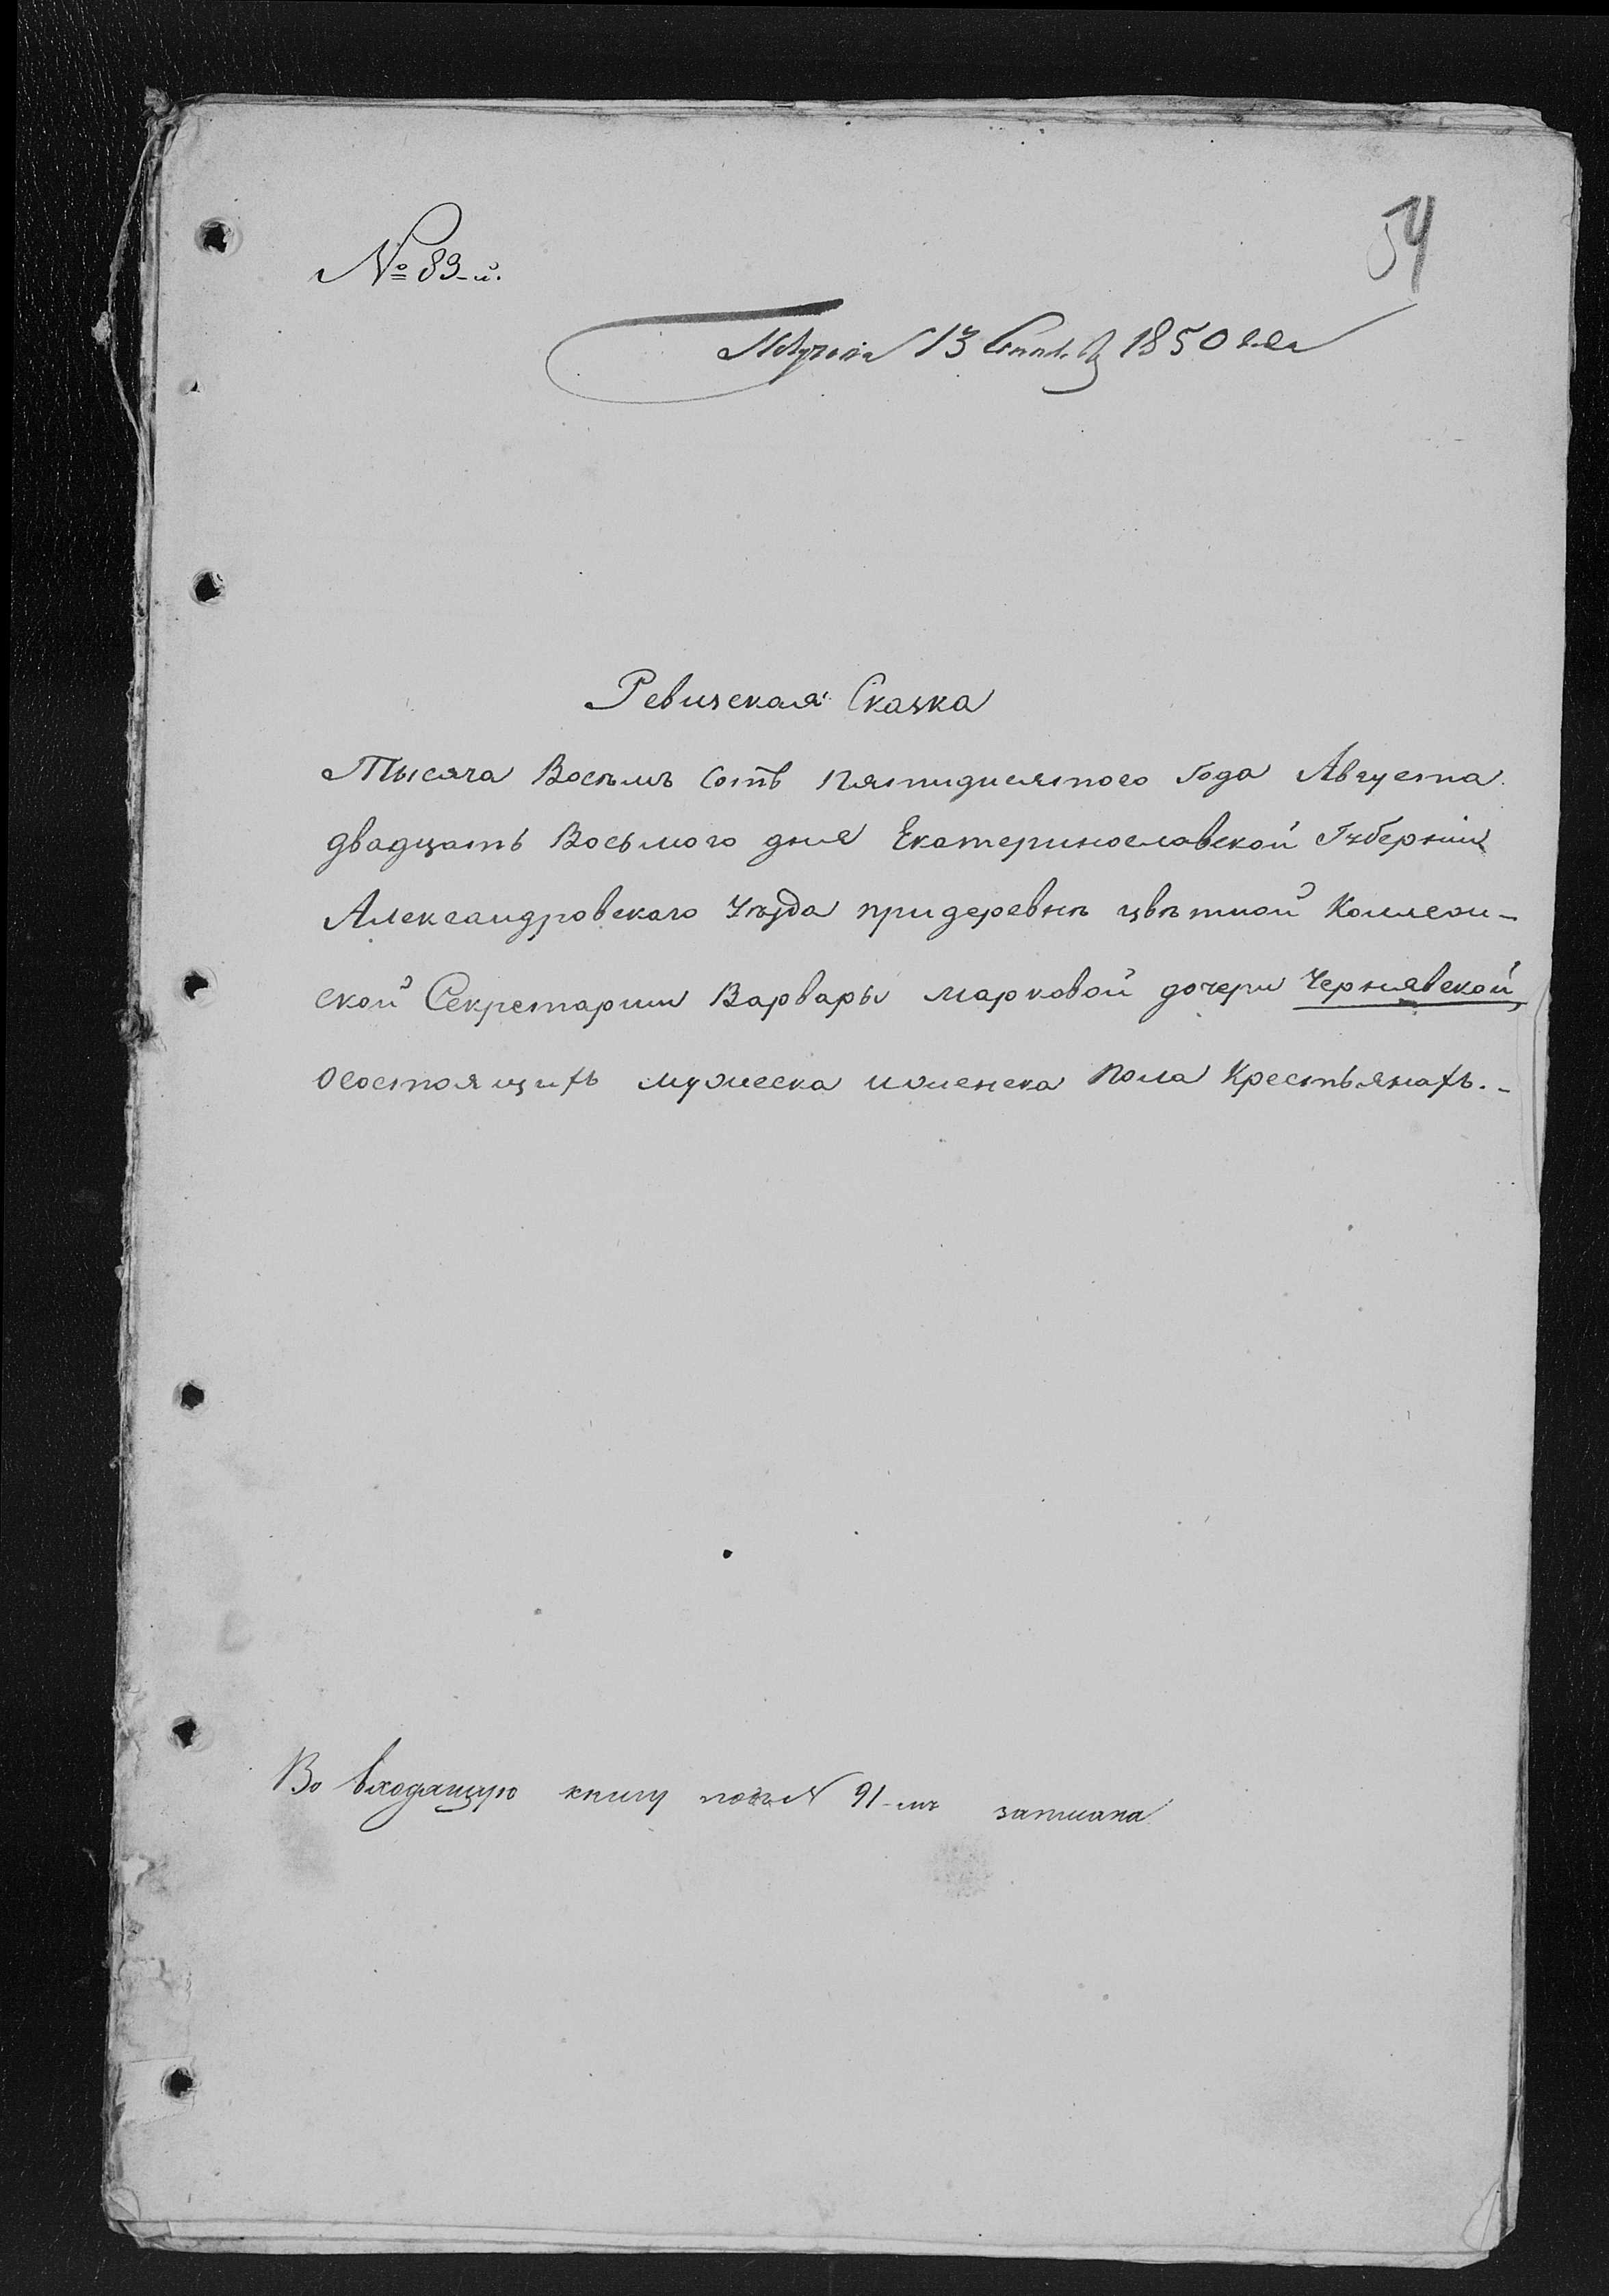 № 83-й.
54
Получена 13 Сентяб 1850 года
Ревизская Сказка
Тысяча Восѣмъ Сотъ Пятидисятого Года Августа
двадцать Восьмого дня Екатеринославской Губерніи
Александровскаго Уѣзда при деревнѣ цвѣтной Коллежи-
ской Секретарши Варвары марковой дочери Чернявской
О состоящихъ мужеска и женска Пола Крестьянахъ.-
Во входящую книгу подъ N 91-мъ записана